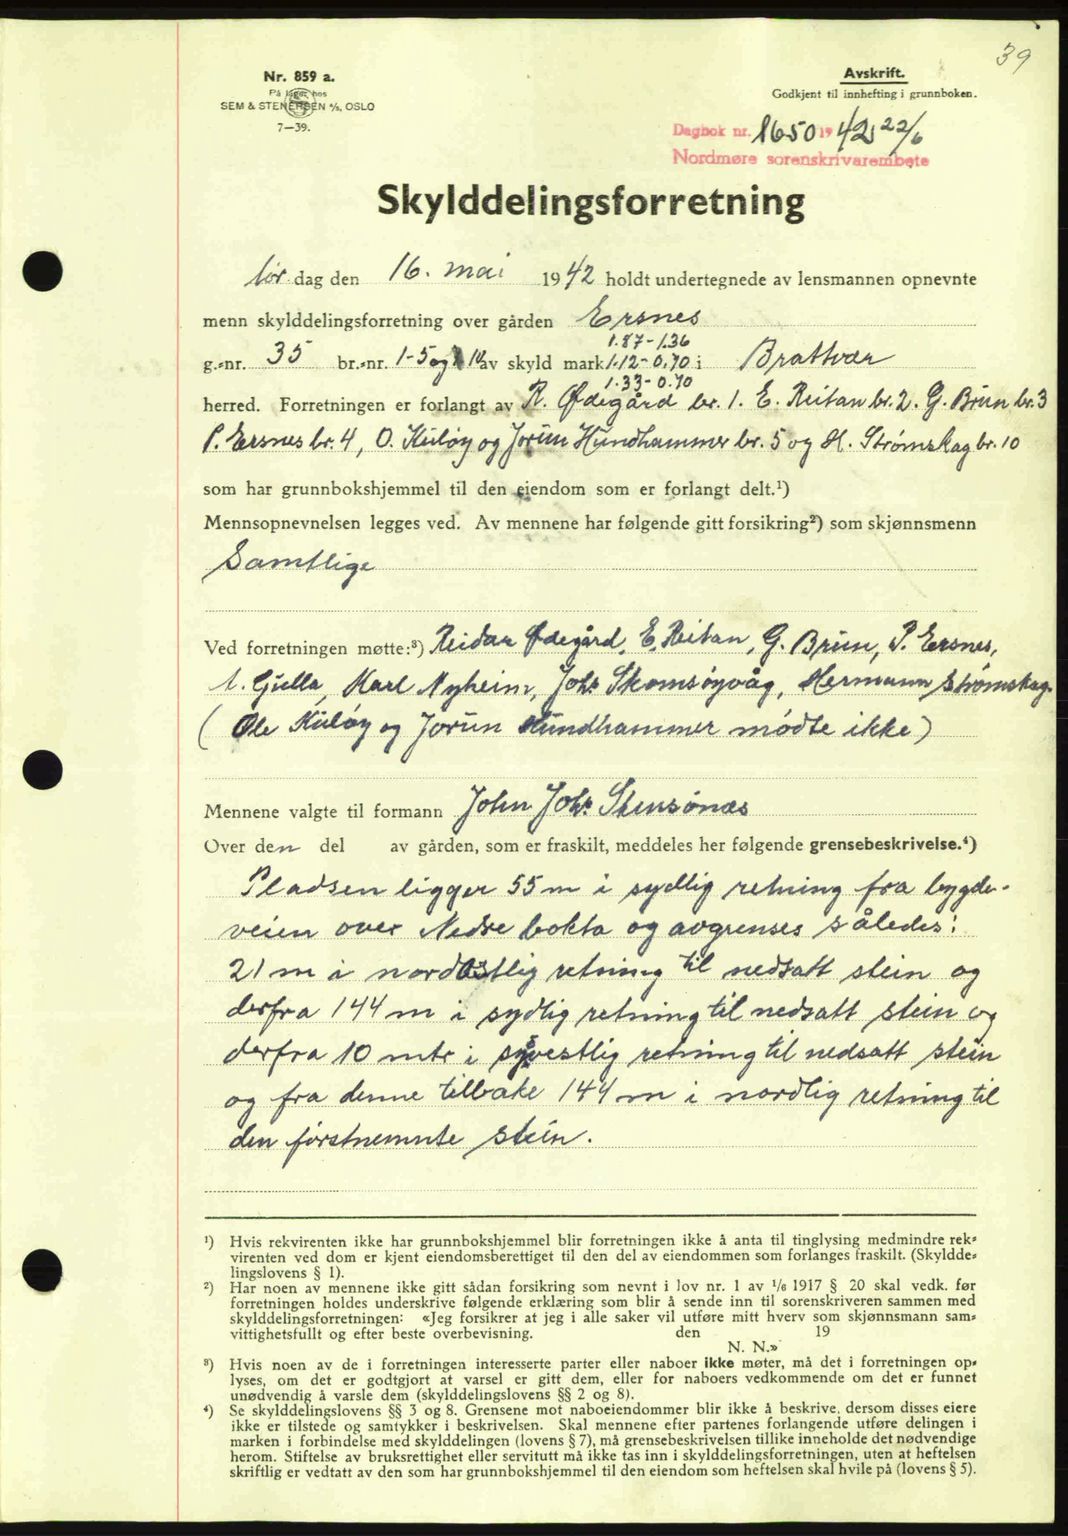 39
Nr. 859 a.
På lager hos
SEM & STENERSEN A/S, OSLO
7—39.
Avskrift.
Godkjent til innhefting i grunnboken.
Dagbok nr. 1650 1942 22/6
Nordmøre sorenskrivarembete
Skylddelingsforretning
lør dag den 16. mai 1942 holdt undertegnede av lensmannen opnevnte
menn skylddelingsforretning over gården Ersnes
1.87-1.36
g.-nr. 35 br.-nr. 1-5 og 10 av skyld mark 1.12-0.70 i Brattvær
1.33-0.70
herred. Forretningen er forlangt av R. Ødegård br. 1. E. Reitan br. 2. G. Brun br. 3
P. Ersnes br. 4, O. Kuløy og Jorun Hundhammer br. 5 og H. Strømskag br. 10
som har grunnbokshjemmel til den eiendom som er forlangt delt.¹)
Mennsopnevnelsen legges ved. Av mennene har følgende gitt forsikring²) som skjønnsmenn
Samtlige
Ved forretningen møtte:³) Reidar Ødegård, E. Reitan, G. Brun, P. Ersnes,
A. Gjulla, Karl Nyheim, Johs Skomsøyvåg, Hermann Strømskag.
( Ole Kuløy og Jorun Hundhammer mødte ikke )
Mennene valgte til formann John Johs.
Over den del av gården, som er fraskilt, meddeles her følgende grensebeskrivelse.⁴)
Pladsen ligger 55 m i sydlig retning fra bygde-
veien over Nedre bokta og avgrenses således:
21 m i nordøstlig retning til nedsatt stein og
derfra 144 m i sydlig retning til nedsatt stein og
derfra 10 mtr i sydvestlig retning til nedsatt stein
og fra denne tilbake 144 m i nordlig retning til
den førstnemnte stein.
¹) Hvis rekvirenten ikke har grunnbokshjemmel blir forretningen ikke å anta til tinglysing medmindre rek-
virenten ved dom er kjent eiendomsberettiget til den del av eiendommen som forlanges fraskilt. (Skyldde-
lingslovens § 1).
²) Har noen av mennene ikke gitt sådan forsikring som nevnt i lov nr. 1 av 1/6 1917 § 20 skal vedk. før
forretningen holdes underskrive følgende erklæring som blir å sende inn til sorenskriveren sammen med
skylddelingsforretningen: «Jeg forsikrer at jeg i alle saker vil utføre mitt hverv som skjønnsmann sam-
vittighetsfullt og efter beste overbevisning. den 19
N. N.»
³) Hvis noen av de i forretningen interesserte parter eller naboer ikke møter, må det i forretningen op-
lyses, om det er godtgjort at varsel er gitt dem, eller for naboers vedkommende om det er funnet
unødvendig å varsle dem (skylddelingslovens §§ 2 og 8).
⁴) Se skylddelingslovens §§ 3 og 8. Grensene mot naboeiendommer blir ikke å beskrive, dersom disses eiere
ikke er tilstede og samtykker i beskrivelsen. Skal mennene efter partenes forlangende utføre delingen i
marken i forbindelse med skylddelingen (lovens § 7), må grensebeskrivelsen tillike inneholde det nødvendige
herom. Stiftelse av bruksrettighet eller servitutt må ikke tas inn i skylddelingsforretningen, uten at heftelsen
skriftlig er vedtatt av den som har grunnbokshjemmel til den eiendom som heftelsen skal hvile på (lovens § 5).